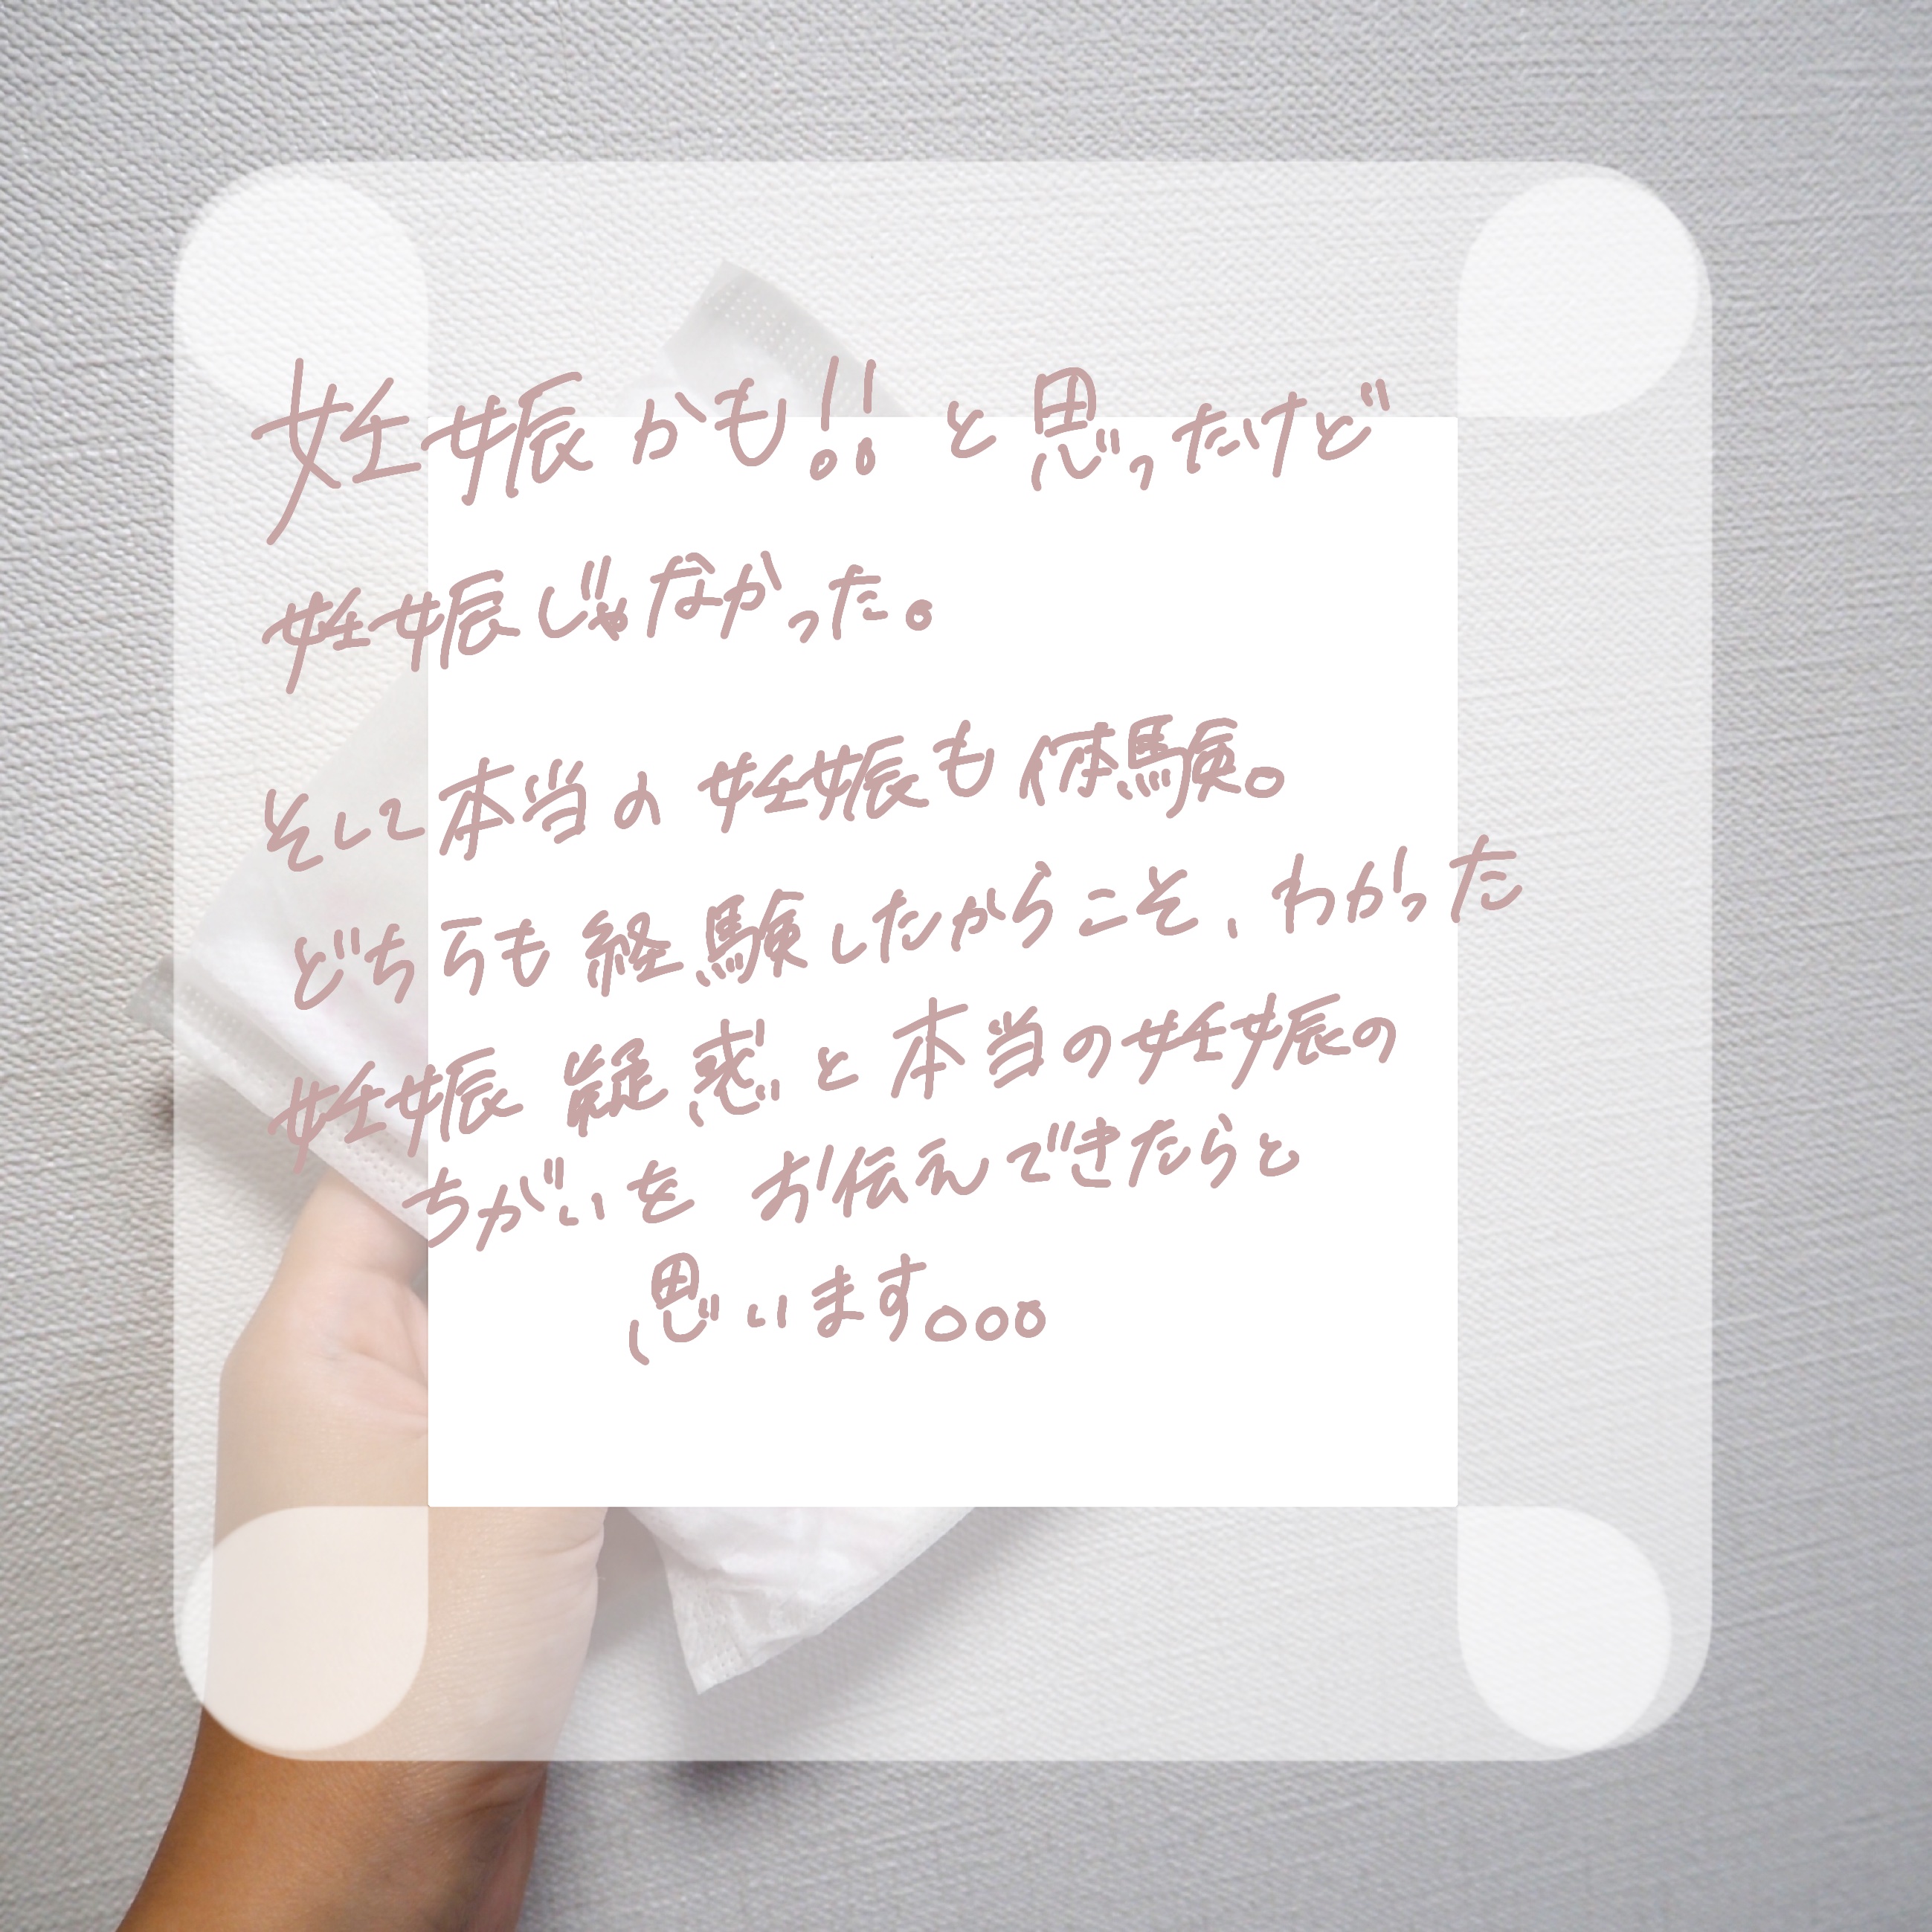 妊娠かも!! と思ったけど
妊娠じゃなかった。
そして本当の妊娠も体験。
どちらも経験したからこそ、わかった
妊娠疑惑と本当の妊娠の
ちがいをお伝えできたらと
思います。。。